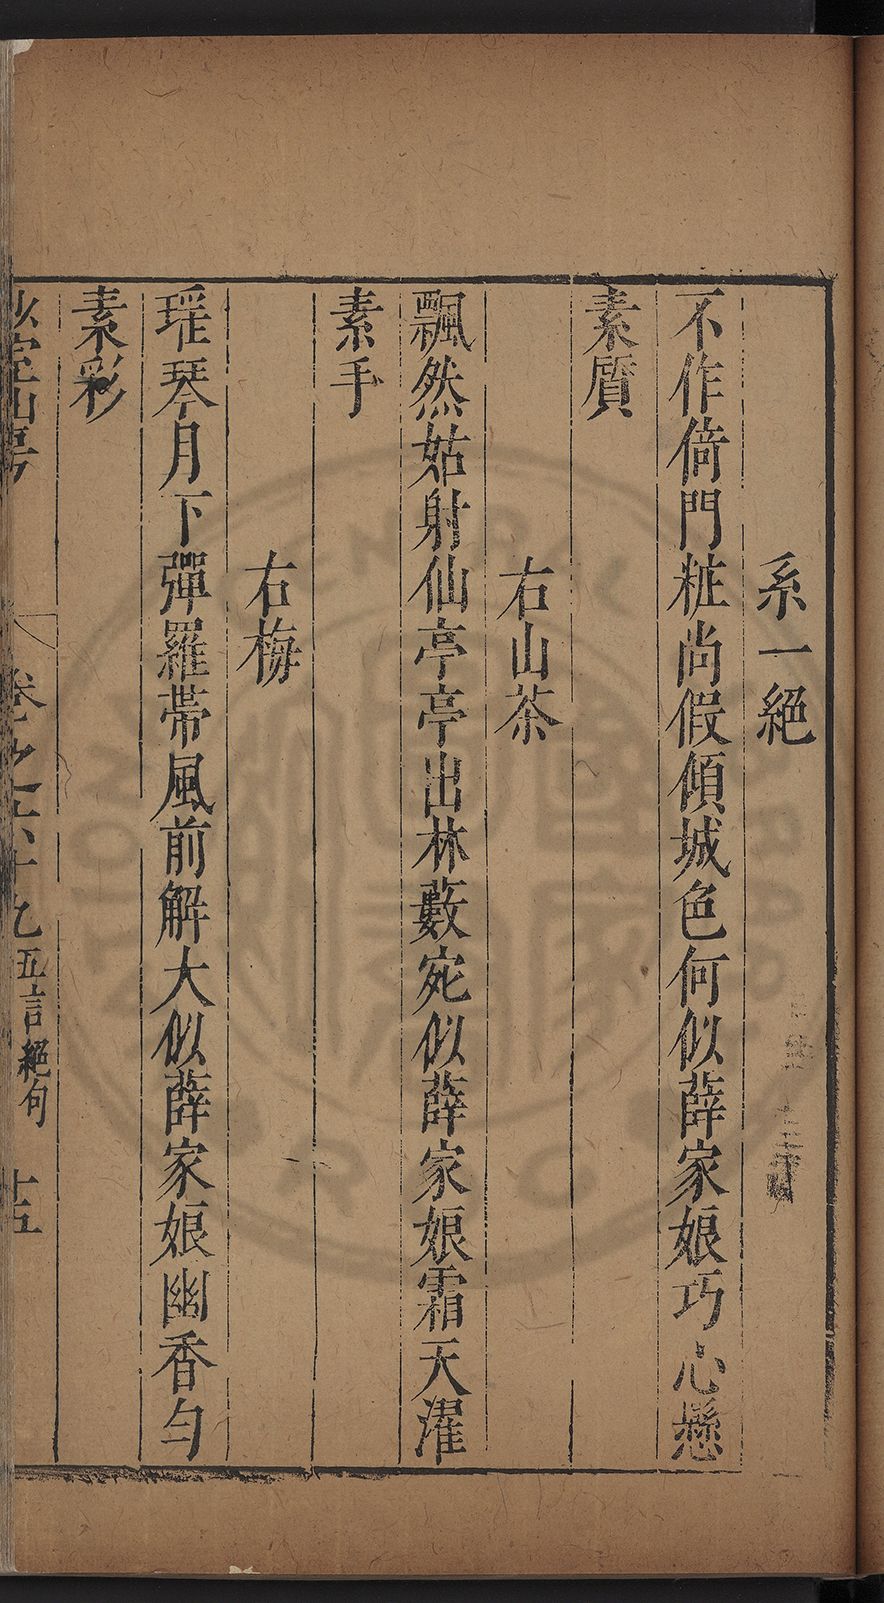 系一絕
不作倚門粧尚假傾城色何似薛家娘巧心懸
素質
右山茶
飄然姑射仙亭亭出林藪宛似薛家娘霜天濯
素手
右梅
瑤琴月下彈羅帶風前解大似薛家娘幽香勻
素彩
少室山房
卷之六十九 五言絕句 十五